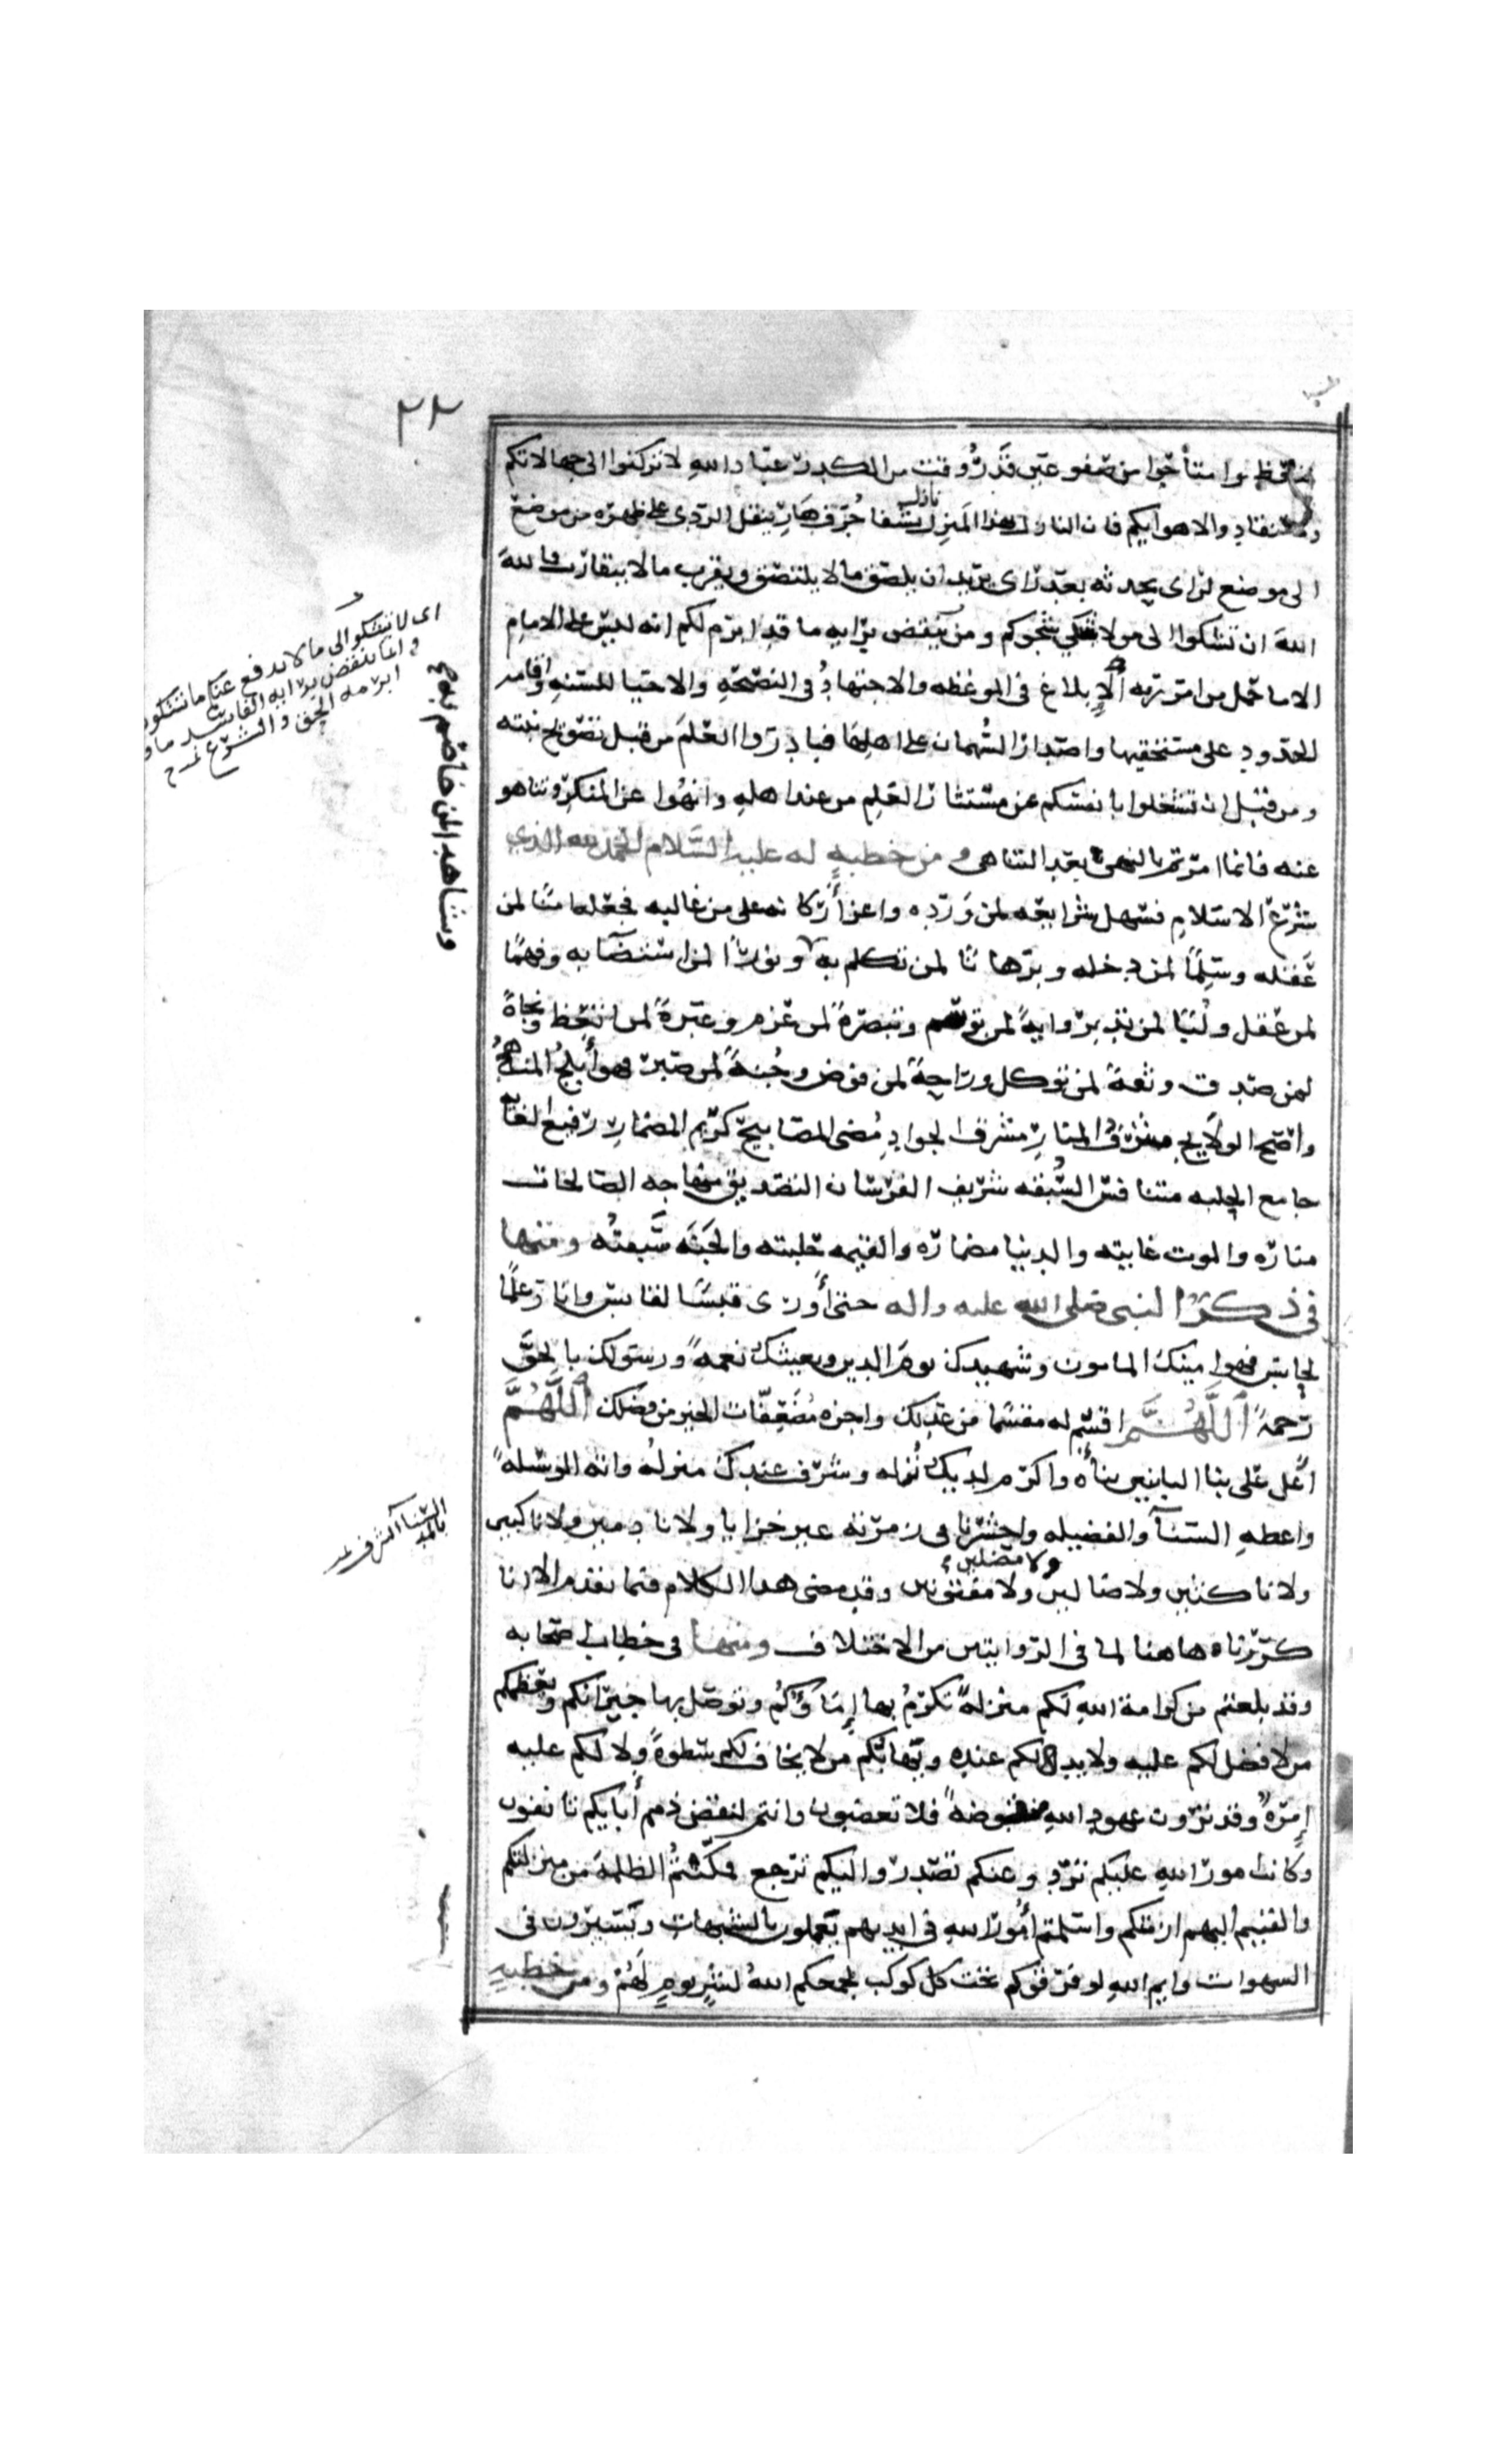 ٢٣
متعظ وامتاحوا من صفو عين قد روقت من الكدر عباد الله لا تركنوا الى جهالاتكم
ولا تنقادوا لاهوايكم فان النازل بهذا المنزل نازل بشفا جرف هار ينقل الردى على ظهره من موضع
الى موضع لراى يحدثه بعد راى يريد ان يلصق ما لا يلتصق ويقرب ما لا يتقارب فالله
الله ان تشكوا الى من لا يشكي شجوكم ومن ينقض برايه ما قد ابرم لكم انه ليس على الامام
الا ما حمل من امر ربه الإبلاغ في الموعظه والاجتهاد في النصيحه والاحيا للسنه واقامه
الحدود على مستحقيها واصدار السهمان على اهلها فبادروا العلم من قبل تصويح نبته
ومن قبل ان تشغلوا بانفسكم عن مستثار العلم من عند اهله وانهوا عن المنكر وتناهوا
عنه فانما امرتم بالنهى بعد التناهى ومن خطبه له عليه السلام الحمد لله الذي
شرع الاسلام فسهل شرايعه لمن ورده واعز أركانه على من غالبه فجعله امنا لمن
عقله وسلما لمن دخله وبرهانا لمن تكلم به ونورا لمن استضآ به وفهما
لمن عقل ولبا لمن تدبر واية لمن توسم وتبصرة لمن عزم وعبرة لمن اتعظ ونجاة
لمن صدق وثقة لمن توكل وراحة لمن فوض وجنة لمن صبر فهو أبلج المناهج
واضح الولايج مشرف المنار مشرق الجواد مضى المصابيح كريم المضمار رفيع الغايه
جامع الحلبه متنافس السبقه شريف الفرسان التصديق منهاجه الصالحات
مناره والموت غايته والدنيا مضماره والقيمه حلبته والجنه سبقته ومنها
في ذكر النبى صلى الله عليه واله حتى أورى قبسا لقابس وانار علما
لحابس فهو امينك المامون وشهيدك يوم الدين وبعيثك نعمة ورسولك بالحق
رحمة اللهم اقسم له مقسما من عدلك واجزه مضعفات الخير من فضلك اللهم
أعل على بنا البانين بناه واكرم لديك نزله وشرف عندك منزله واته الوسيلة
واعطه السنآ والفضيله واحشرنا في زمرته غير خزايا ولا نادمين ولا ناكبين
ولا ناكثين ولا ضالين ولا مضلين ولا مفتونين وقد مضى هذا الكلام فيما تقدم الا انا
كررناه هاهنا لما في الروايتين من الاختلاف ومنها في خطاب اصحابه
وقد بلغتم من كرامة الله لكم منزلة تكرم بها إماؤكم وتوصل بها جيرانكم ويعظمكم
من لا فضل لكم عليه ولا يد لكم عنده ويهابكم من لا يخاف لكم سطوة ولا لكم عليه
إمرة وقد ترون عهود الله منقوضة فلا تغضبون وانتم لنقض ذمم أبايكم تانفون
وكانت امور الله عليكم ترد وعنكم تصدر واليكم ترجع فمكنتم الظلمة من منزلتكم
والقيتم اليهم ازمتكم واسلمتم أمور الله في ايديهم يعملون بالشبهات ويسيرون في
الشهوات وايم الله لو فرقوكم تحت كل كوكب لجمعكم الله لشر يوم لهم ومن خطبه
اى لا تشكوا الى ما لا يدفع عنكم ما تشكون
وانما ينقض برايه الفاسد ما قد
ابرمه الحق والشرع
وشاهدا لمن خاصم به
السنا الشرف
بالمد